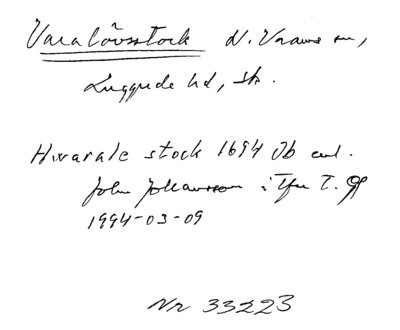 Varalövsstock N. Vram sn,
Luggude hd, Sk.
Hwarale stock 1694 Jb enl.
John Johansson i Tfm T. 9
1994-03-09
Nr 33223